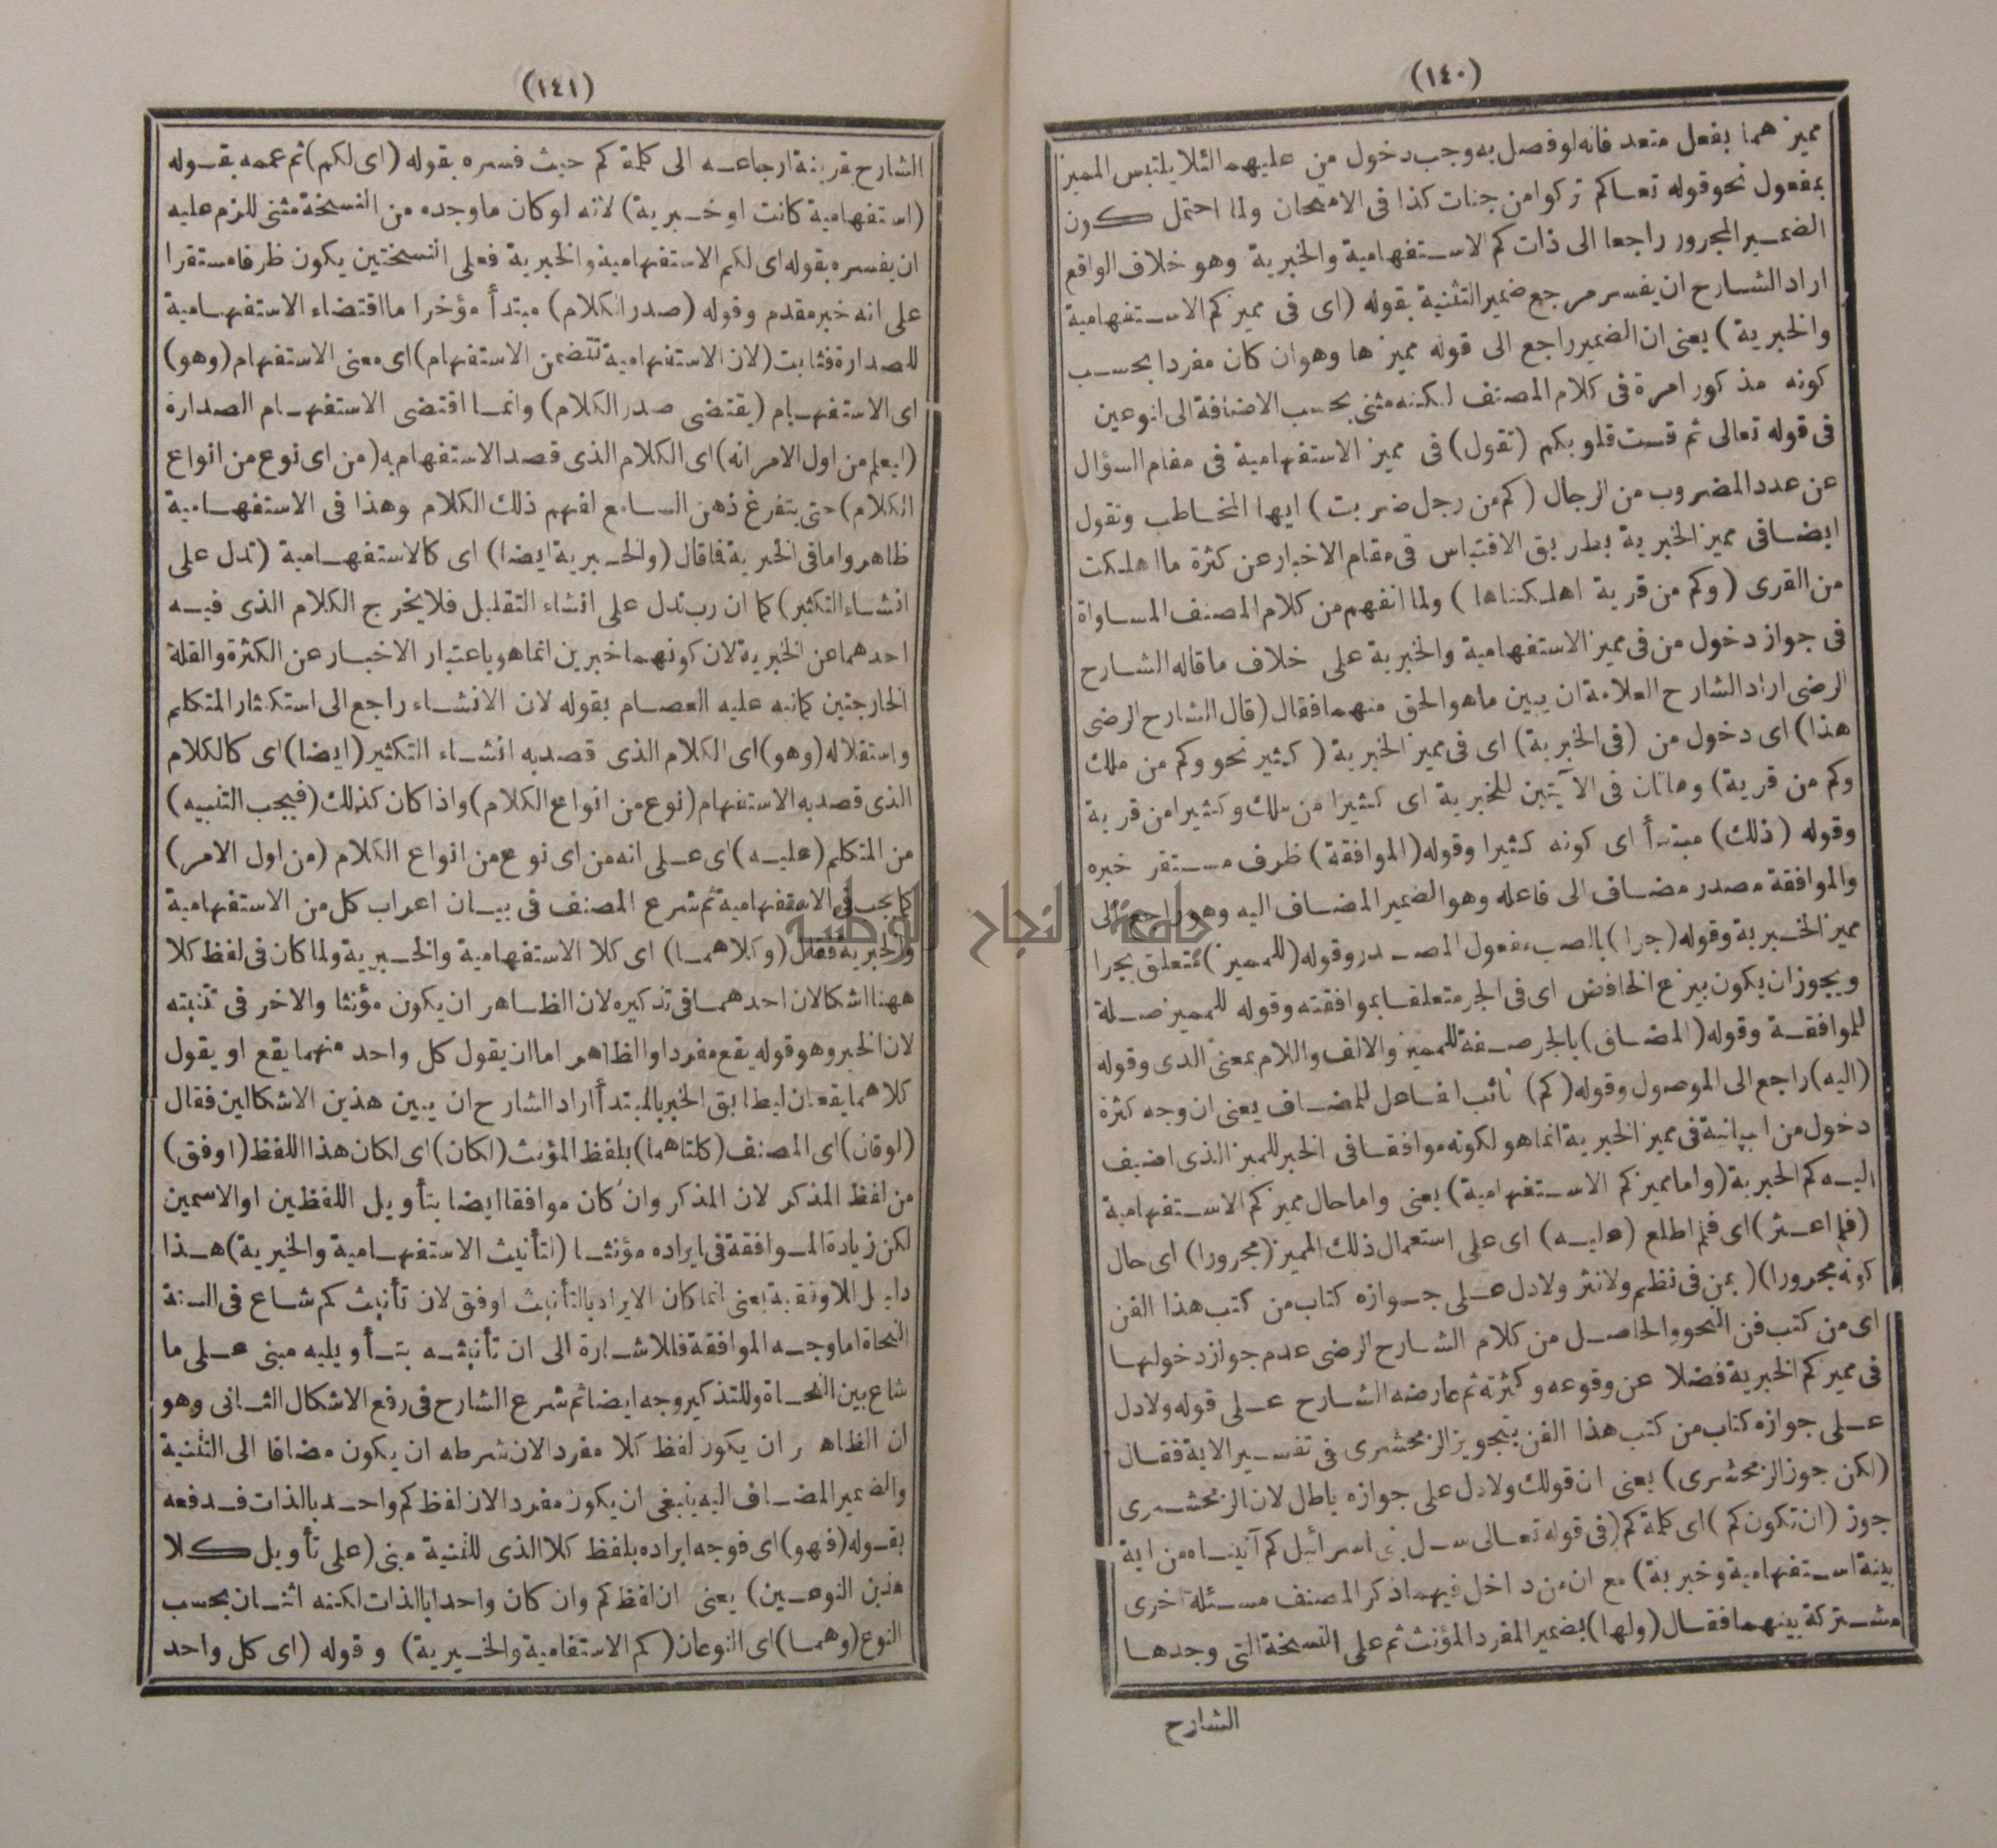 (١٤٠)
مميز هما بفعل متعد فانه لو فصل به وجب دخول من عليهما لئلا يلتبس المميز
بمفعول نحو قوله تعالى كم تركوا من جنات كذا فى الامتحان ولما احتمل كون
الضمير المجرور راجعا الى ذات كم الاستفهامية والخبرية وهو خلاف الواقع
اراد الشارح ان يفسر مرجع ضمير التثنية بقوله (اى فى مميز كم الاستفهامية
والخبرية) يعنى ان الضمير راجع الى قوله مميز ها وهو ان كان مفردا بحسب
كونه مذكورا مرة فى كلام المصنف لكنه مثنى بحسب الاضافة الى النوعين
فى قوله تعالى ثم قست قلوبكم (تقول) فى مميز الاستفهامية فى مقام السؤال
عن عدد المضروب من الرجال (كم من رجل ضربت) ايها المخاطب وتقول
ايضا فى مميز الخبرية بطريق الاقتباس فى مقام الاخبار عن كثرة ما اهلكت
من القرى (وكم من قرية اهلكناها) ولما انفهم من كلام المصنف المساواة
فى جواز دخول من فى مميز الاستفهامية والخبرية على خلاف ما قاله الشارح
الرضى اراد الشارح العلامة ان يبين ما هو الحق منهما فقال (قال الشارح الرضى
هذا) اى دخول من (فى الخبرية) اى فى مميز الخبرية (كثير نحو وكم من ملك
وكم من قرية) وهاتان فى الآيتين للخبرية اى كثيرا من ملك وكثيرا من قرية
وقوله (ذلك) مبتدأ اى كونه كثيرا وقوله (الموافقة) ظرف مستقر خبره
والموافقة مصدر مضاف الى فاعله وهو الضمير المضاف اليه وهو راجع الى
مميز الخبرية وقوله (جرا) بالنصب مفعول المصدر وقوله (للمميز) متعلق بجرا
ويجوز ان يكون بنزع الخافض اى فى الجر متعلقا بموافقته وقوله للمميز صلة
للموافقة وقوله (المضاف) بالجر صفة للمميز والالف واللام بمعنى الذى وقوله
(اليه) راجع الى الموصول وقوله (كم) نائب الفاعل للمضاف يعنى ان وجه كثرة
دخول من البيانية فى مميز الخبرية انما هو لكونه موافقا فى الخبر للمميز الذى اضيف
اليه كم الخبرية (واما مميز كم الاستفهامية) يعنى واما حال مميز كم الاستفهامية
(فلم اعثر) اى فلم اطلع (عليه) اى على استعمال ذلك المميز (مجرورا) اى حال
كونه مجرورا) (بمن فى نظم ولا نثر ولا دل على جوازه كتاب من كتب هذا الفن
اى من كتب فن النحو والحاصل من كلام الشارح الرضى عدم جواز دخولها
فى مميز كم الخبرية فضلا عن وقوعه وكثرته ثم عارضه الشارح على قوله ولا دل
على جوازه كتاب من كتب هذا الفن بتجويز الزمخشرى فى تفسير الاية فقال
(لكن جوز الزمخشرى) يعنى ان قولك ولا دل على جوازه باطل لان الزمخشرى
جوز (ان تكون كم) اى كلمة كم (فى قوله تعالى سل بنى اسرائيل كم آتيناه من اية
بينة استفهامية وخبرية) مع ان من داخل فيهما ذكر المصنف مسئلة اخرى
مشتركة بينهما فقال (ولها) بضمير المفرد المؤنث ثم على النسخة التى وجدها
الشارح
(١٤١)
الشارح بقرينة ارجاعه الى كلمة كم حيث فسره بقوله (اى لكم) ثم عممه بقوله
(استفهامية كانت او خبرية) لانه لو كان ما وجده من النسخة مثنى للزم عليه
ان يفسره بقوله اى لكم الاستفهامية والخبرية فعلى النسختين يكون ظرفا مستقرا
على انه خبر مقدم وقوله (صدر الكلام) مبتدأ مؤخرا ما اقتضاء الاستفهامية
للصدارة فثابت (لان الاستفهامية تتضمن الاستفهام) اى معنى الاستفهام (وهو)
اى الاستفهام (يقتضى صدر الكلام) وانما اقتضى الاستفهام الصدارة
(ليعلم من اول الامر انه) اى الكلام الذى قصد الاستفهام به (من اى نوع من انواع
الكلام) حتى يتفرغ ذهن السامع لفهم ذلك الكلام وهذا فى الاستفهامية
ظاهر واما فى الخبرية فما قال (والخبرية ايضا) اى كالاستفهامية (تدل على
انشاء التكثير) كما ان رب تدل على انشاء التقليل فلا يخرج الكلام الذى فيه
احدهما عن الخبرية لان كونهما خبرين انما هو باعتبار الاخبار عن الكثرة والقلة
الخارجتين كما نبه عليه العصام بقوله لان الانشاء راجع الى استكثار المتكلم
واستقلاله (وهو) اى الكلام الذى قصد به انشاء التكثير (ايضا) اى كالكلام
الذى قصد به الاستفهام (نوع من انواع الكلام) واذا كان كذلك (فيجب التنبيه)
من المتكلم (عليه) اى على انه من اى نوع من انواع الكلام (من اول الامر)
كما يجب فى الاستفهامية ثم شرع المصنف فى بيان اعراب كل من الاستفهامية
والخبرية فقال (وكلاهما) اى كلا الاستفهامية والخبرية ولما كان فى لفظ كلا
ههنا اشكالان احدهما فى تذكيره لان الظاهر ان يكون مؤنثا والاخر فى تثنيته
لان الخبر وهو قوله يقع مفرد او الظاهر اما ان يقول كل واحد منهما يقع او يقول
كلاهما يقعان ليطابق الخبر بالمبتدأ اراد الشارح ان يبين هذين الاشكالين فقال
(لو قال) اى المصنف (كلتاهما) بلفظ المؤنث (لكان) اى لكان هذا اللفظ (اوفق)
من لفظ المذكر لان المذكر وان كان موافقا ايضا بتأويل اللفظين او الاسمين
لكن زيادة الموافقة فى ايراده مؤنثا (لتأنيث الاستفهامية والخبرية) هذا
دليل للاوفقية يعنى انما كان الايراد بالتأنيث اوفق لان تأنيث كم شاع فى السنة
النحاة اما وجه الموافقة فللاشارة الى ان تأنيثه بتأويليه مبنى على ما
شاع بين النحاة وللتذكير وجه ايضا ثم شرع الشارح فى رفع الاشكال الثانى وهو
ان الظاهر ان يكون لفظ كلا مفردا لان شرطه ان يكون مضافا الى التثنية
والضمير المضاف اليه ينبغى ان يكون مفردا لان لفظ كم واحد بالذات فدفعه
بقوله (فهو) اى فوجه ايراده بلفظ كلا الذى للتثنية مبنى (على تأويل كلا
هذين النوعين) يعنى ان لفظ كم وان كان واحدا بالذات لكنه اثنان بحسب
النوع (وهما) اى النوعان (كم الاستفهامية والخبرية) وقوله (اى كل واحد
جامعة النجاح الوطنية